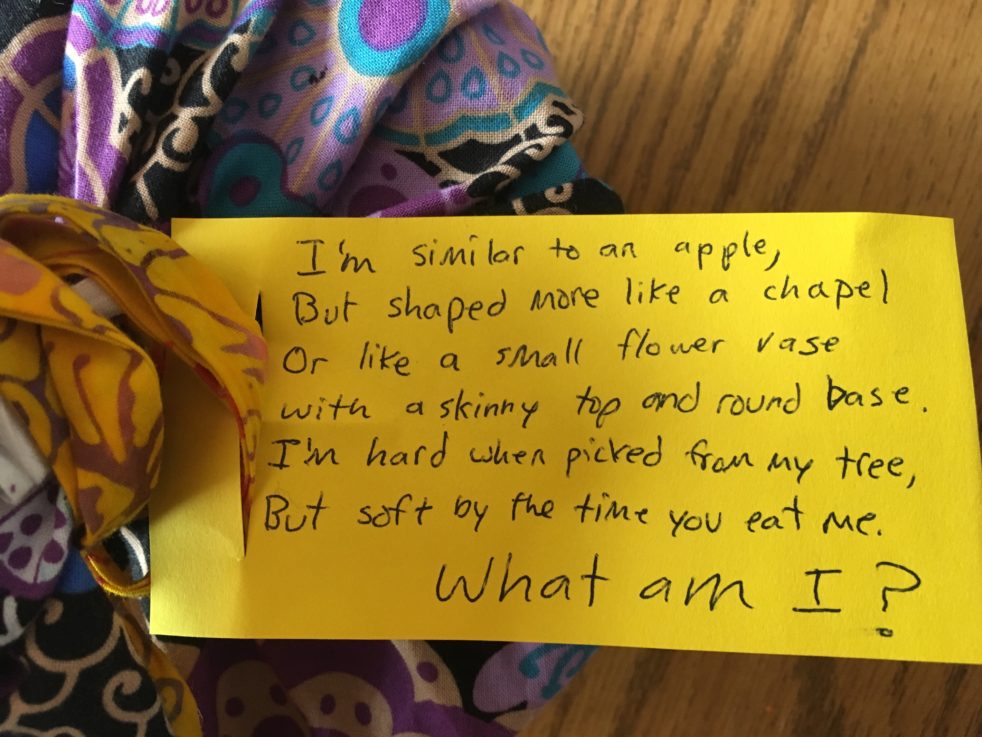 I'm similar to an apple,
But shaped more like a chapel
Or like a small flower vase
with a skinny top and round base.
I'm hard when picked from my tree,
But soft by the time you eat me.
What am I?